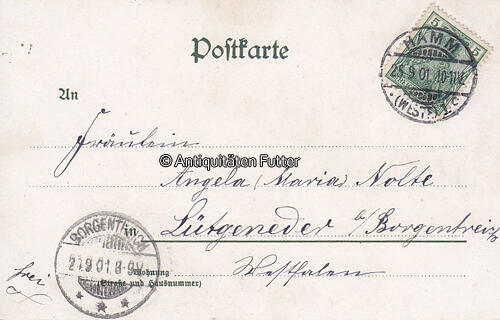 5 5
Postkarte
HAMM
25.9.01. 10-11V.
(WESTF.) 1 c
An
Fräulein
© Antiquitäten Futter
Angela (Maria) Nolte
in Lütgeneder b/Borgentreich
BORGENTREICH
8-9V
frei
Westfalen
Wohnung
(Straße und Hausnummer)